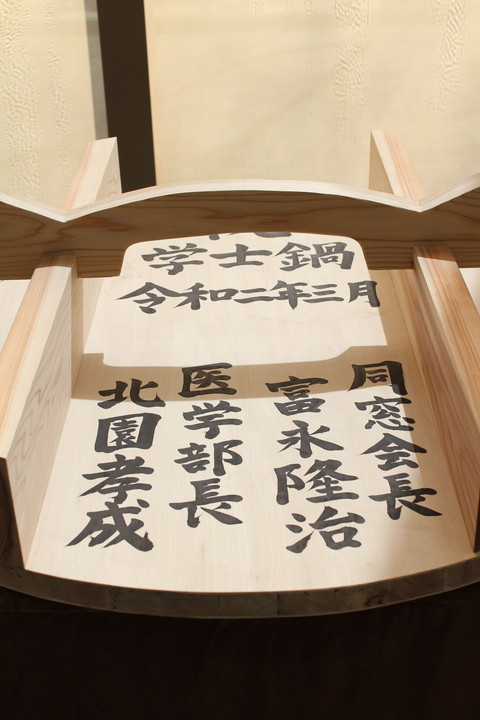 学士鍋
令和二年三月
同窓会長
富永隆治
医学部長
北園孝成